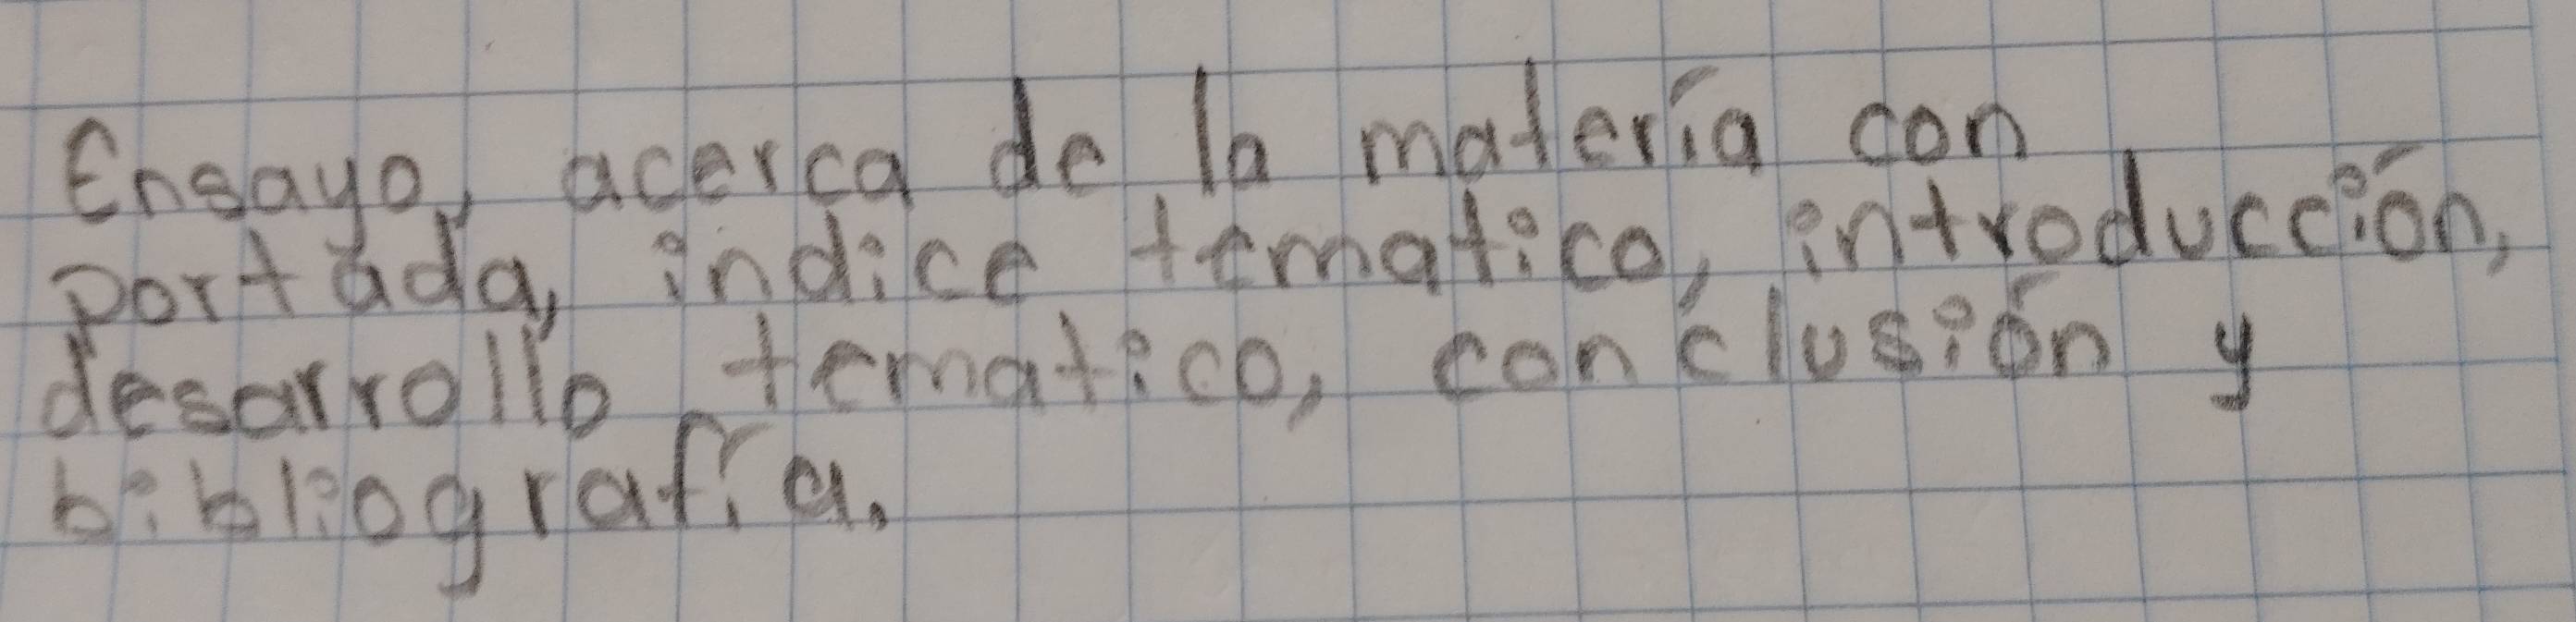 Ensayo, acerca de la matería con
portada, indice tematico, introducción,
desarrollo tematico, conclusión y
bibliografía.